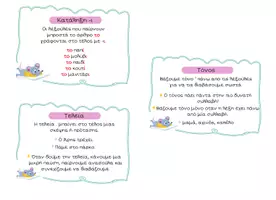 Κατάληξη -ι
Οι λεξούλες που παίρνουν
μπροστά το άρθρο το
γράφονται στο τέλος με -ι
το παπί
το μολύβι
το παιδί
το κουτί
το μανιτάρι
Τόνος
Βάζουμε τόνο ΄ πάνω από τα λεξούλα
για να τα διαβάσουμε σωστά.
Ο τόνος πάει πάντα στην πιο δυνατή
συλλαβή!
Βάζουμε τόνο μόνο όταν η λέξη έχει πάνω
από μία συλλαβή.
μαμά, αγόρι, καπέλο
Τελεία
Η τελεία . μπαίνει στο τέλος μίας
σκέψης ή πρότασης.
Ο Άρης τρέχει.
Πάμε στο πάρκο.
Όταν δούμε την τελεία, κάνουμε μια
μικρή παύση, παίρνουμε ανάσα και
συνεχίζουμε να διαβάζουμε.